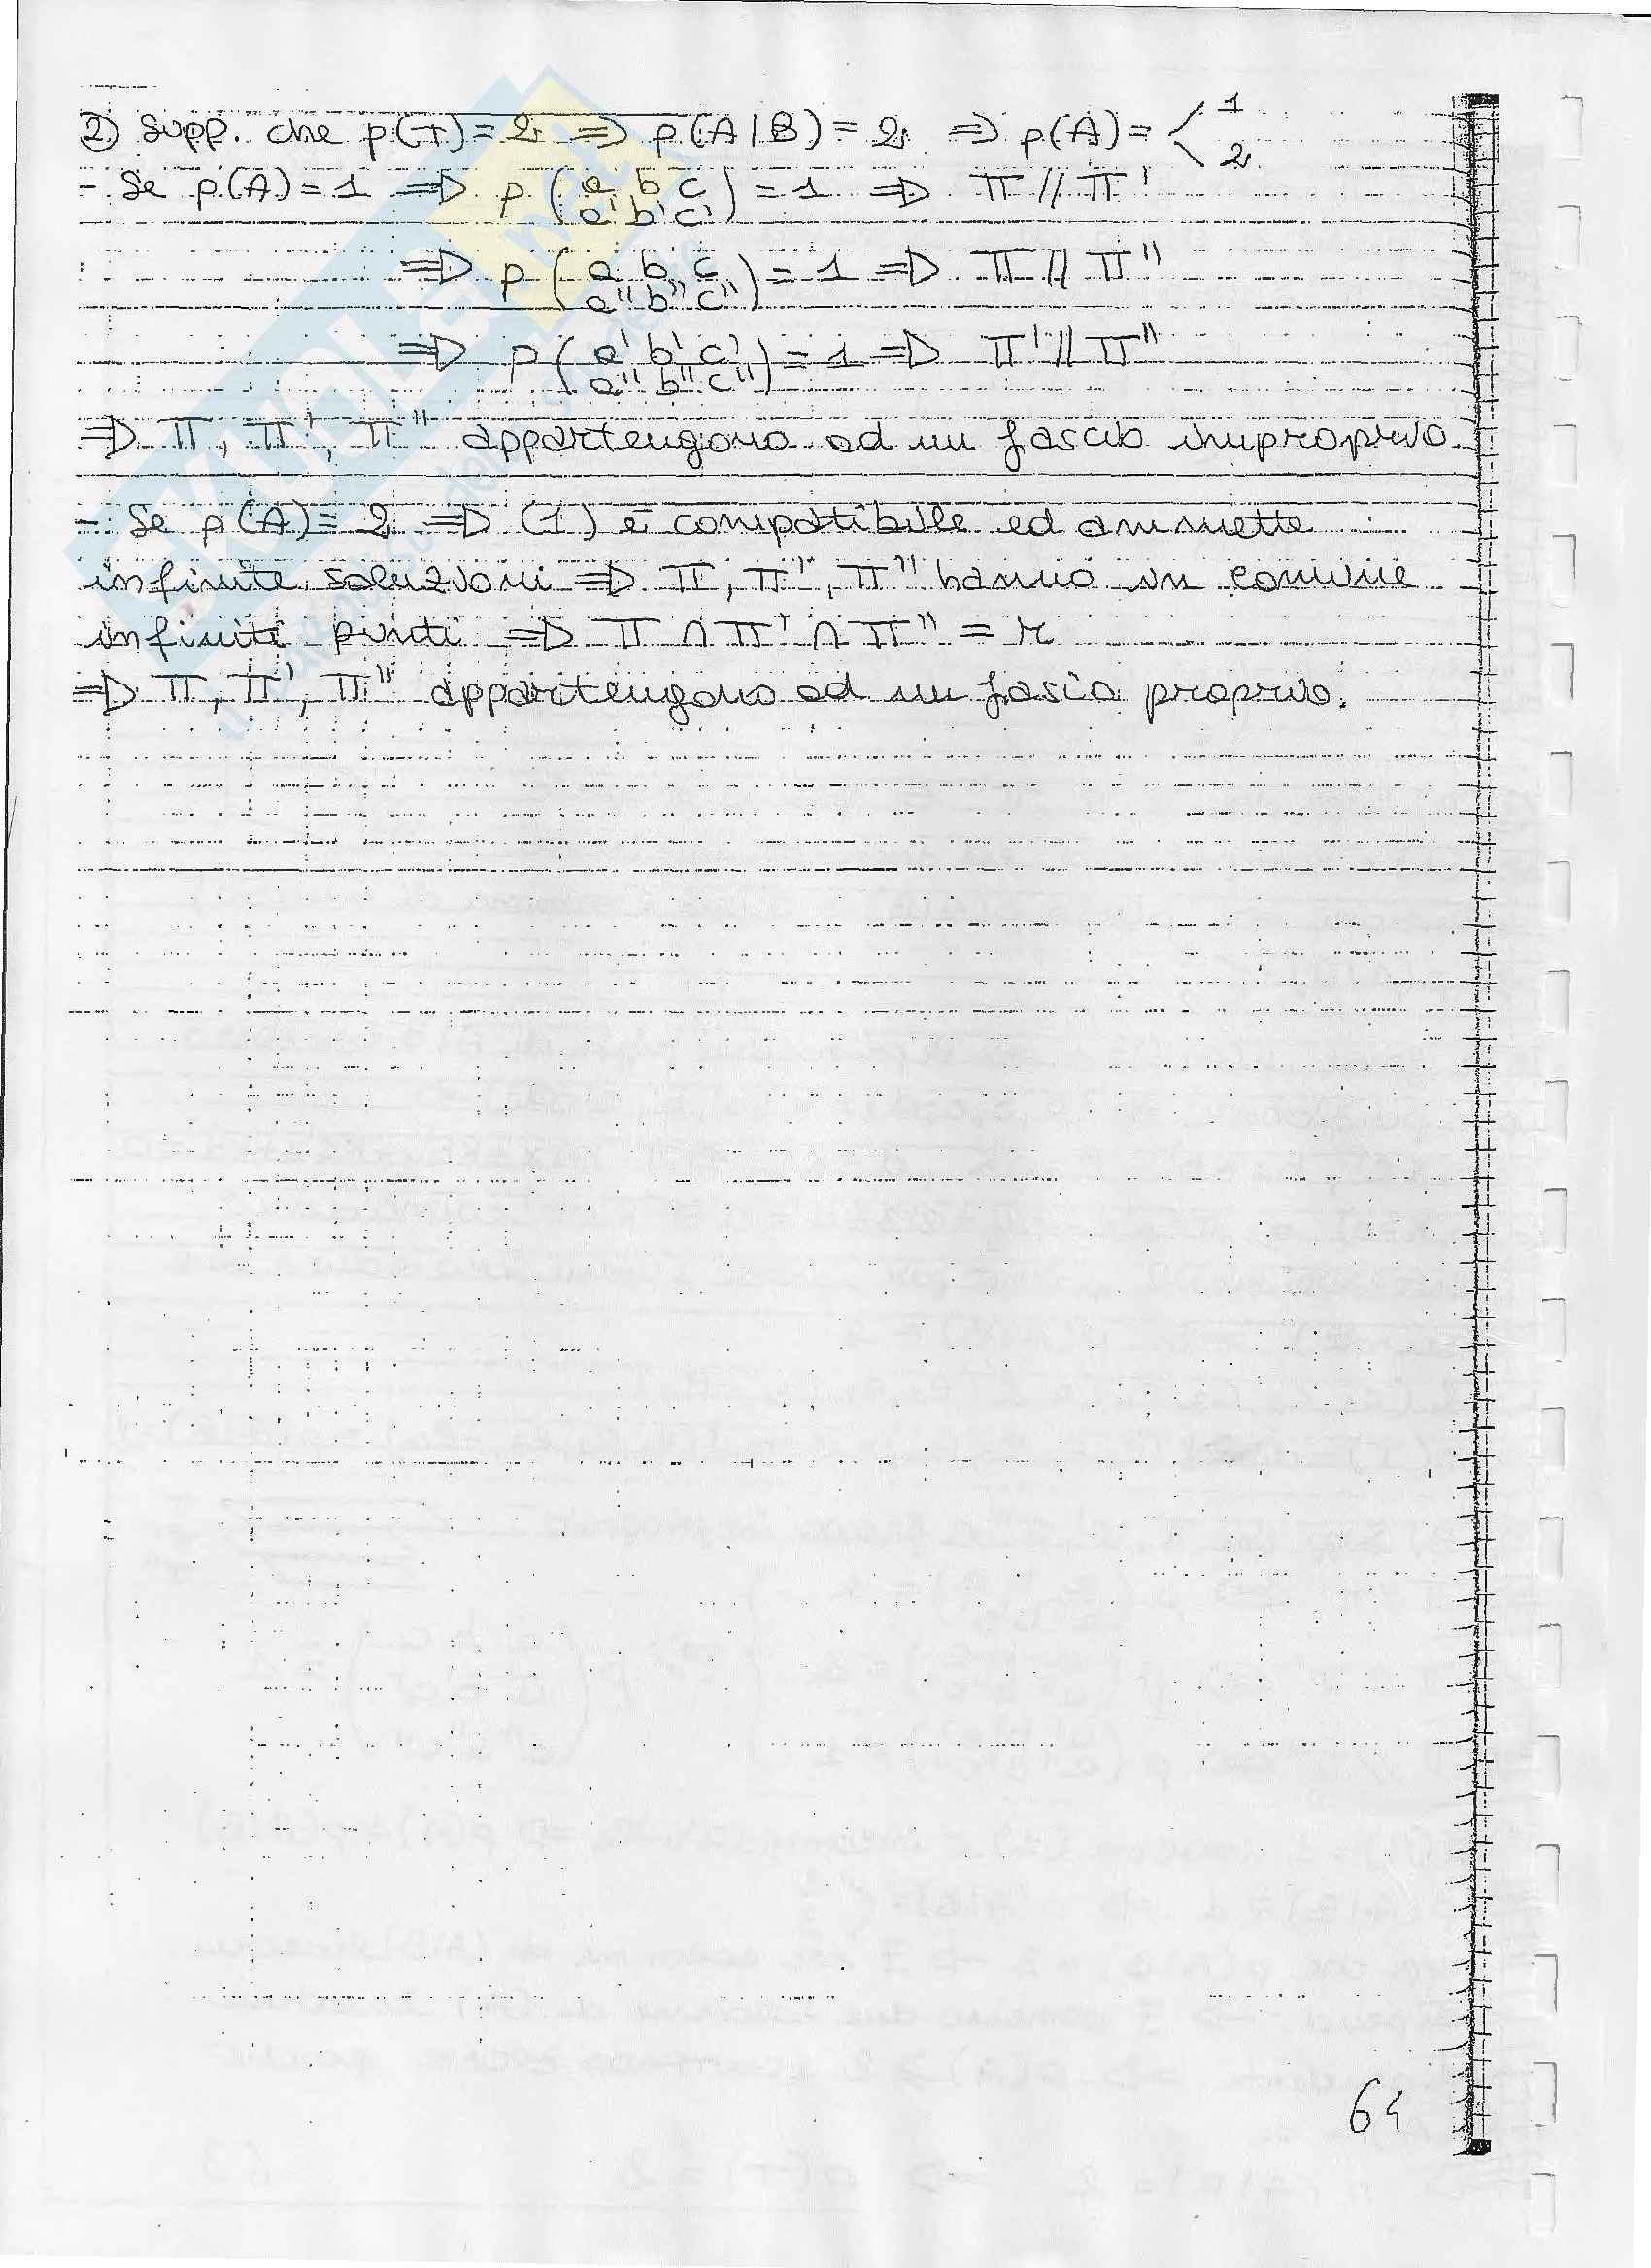 2) Supp. che p(T) = 2 ⇒ p(A|B) = 2 ⇒ p(A) = < 1 2
- Se p(A) = 1 ⇒ p (a b c / a' b' c') = 1 ⇒ π // π'
⇒ p (a b c / a'' b'' c'') = 1 ⇒ π // π''
⇒ p (a' b' c' / a'' b'' c'') = 1 ⇒ π' // π''
⇒ π, π', π'' appartengono ad un fascio improprio.
- Se p(A) = 2 ⇒ (1) è compatibile ed ammette
infinite soluzioni ⇒ π, π', π'' hanno in comune
infiniti punti ⇒ π ∩ π' ∩ π'' = r
⇒ π, π', π'' appartengono ad un fascio proprio.
64